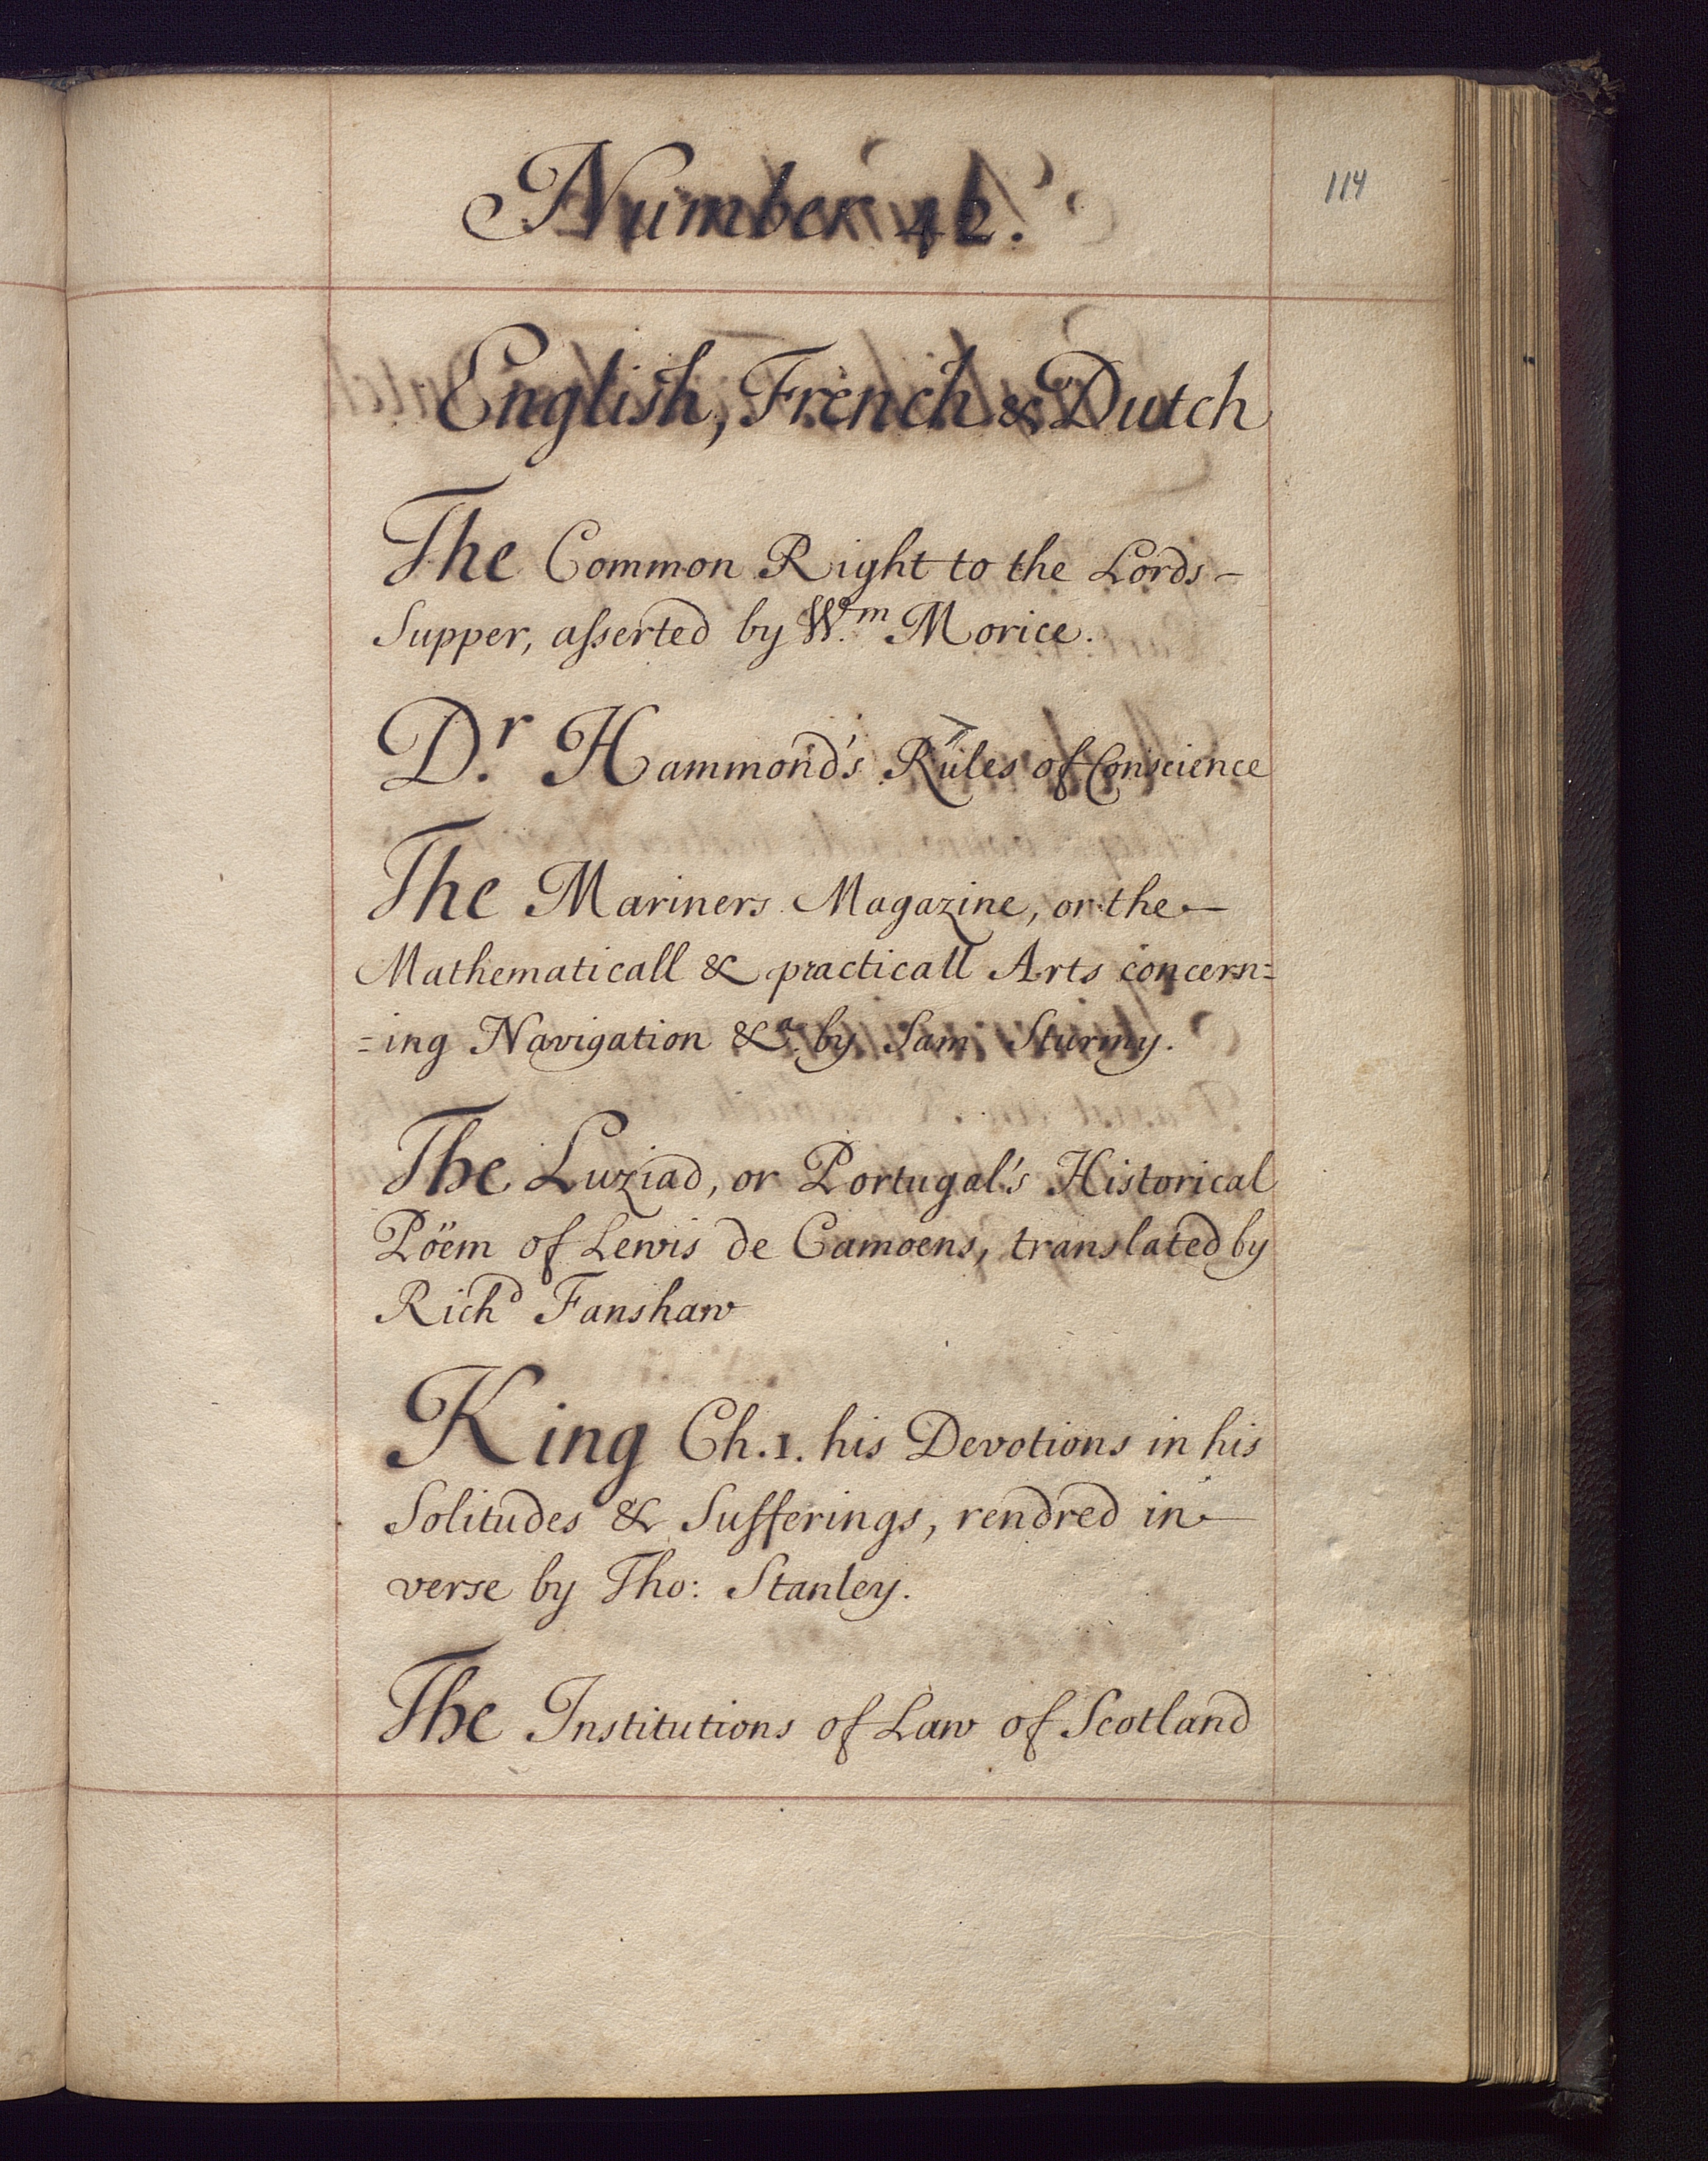 114
Number 42.
English, French & Dutch
The Common Right to the Lords-
Supper, asserted by W.m Morice.
D.r Hammond's Rules of Conscience
The Mariners Magazine, or the
Mathematicall & practicall Arts concern=
=ing Navigation &a. by Sam Sturmy.
The Luziad, or Portugal's Historical
Pöem of Lewis de Camoens, translated by
Richd Fanshaw
King Ch.1. his Devotions in his
Solitudes & Sufferings, rendred in
verse by Tho: Stanley.
The Institutions of Law of Scotland